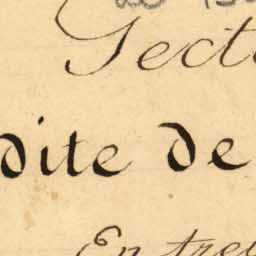 Sect
dite de
En tre